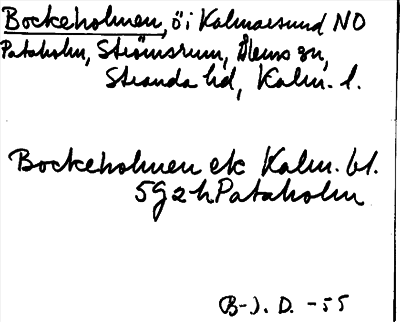 Bockeholmen, ö i Kalmarsund NO
Pataholm, Strömsrum, Ålems sn,
Stranda hd, Kalm. l.
Bockeholmen ek Kalm. bl.
5G2h Pataholm
B-J. D. -55